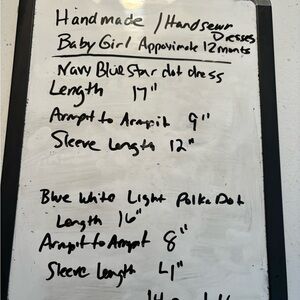 Handmade / Handsewn
Dresses
Baby Girl Approximate 12 months
Navy Blue Star dot dress
Length 17"
Armpit to Armpit 9"
Sleeve Length 12"
Blue White Light Polka Dot
Length 16"
Armpit to Armpit 8"
Sleeve Length 4"